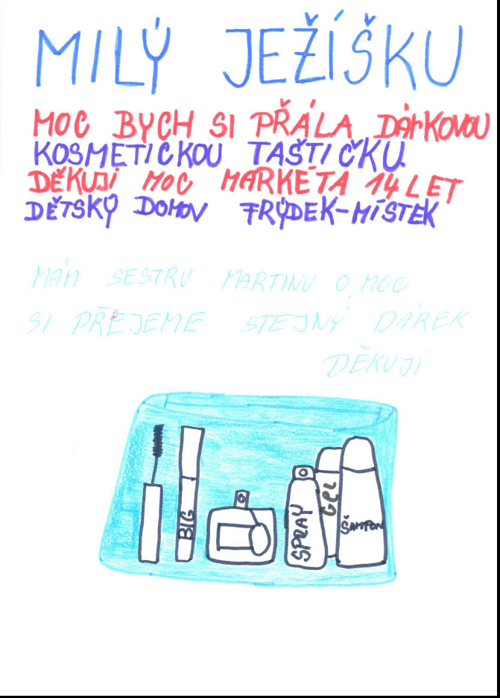 MILÝ JEŽÍŠKU
MOC BYCH SI PŘÁLA DÁRKOVOU
KOSMETICKOU TAŠTIČKU.
DĚKUJI MOC MARKÉTA 14 LET
DĚTSKÝ DOMOV FRÝDEK-MÍSTEK
MÁM SESTRU MARTINU O MOC
SI PŘEJEME STEJNÝ DÁREK
DĚKUJI
BIG
SPRAY
GEL
ŠAMPON